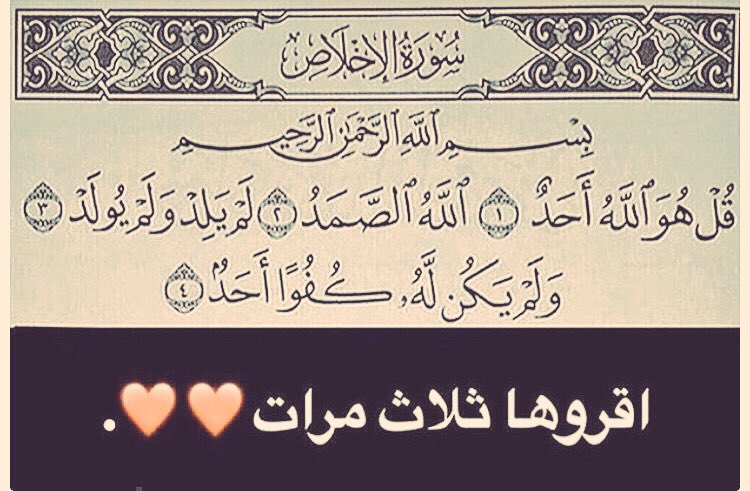 سُورَةُ الإِخْلَاصِ
بِسْمِ ٱللَّهِ ٱلرَّحْمَٰنِ ٱلرَّحِيمِ
قُلْ هُوَ ٱللَّهُ أَحَدٌ ١ ٱللَّهُ ٱلصَّمَدُ ٢ لَمْ يَلِدْ وَلَمْ يُولَدْ ٣
وَلَمْ يَكُن لَّهُۥ كُفُوًا أَحَدٌۢ ٤
اقروها ثلاث مرات 🧡🧡.